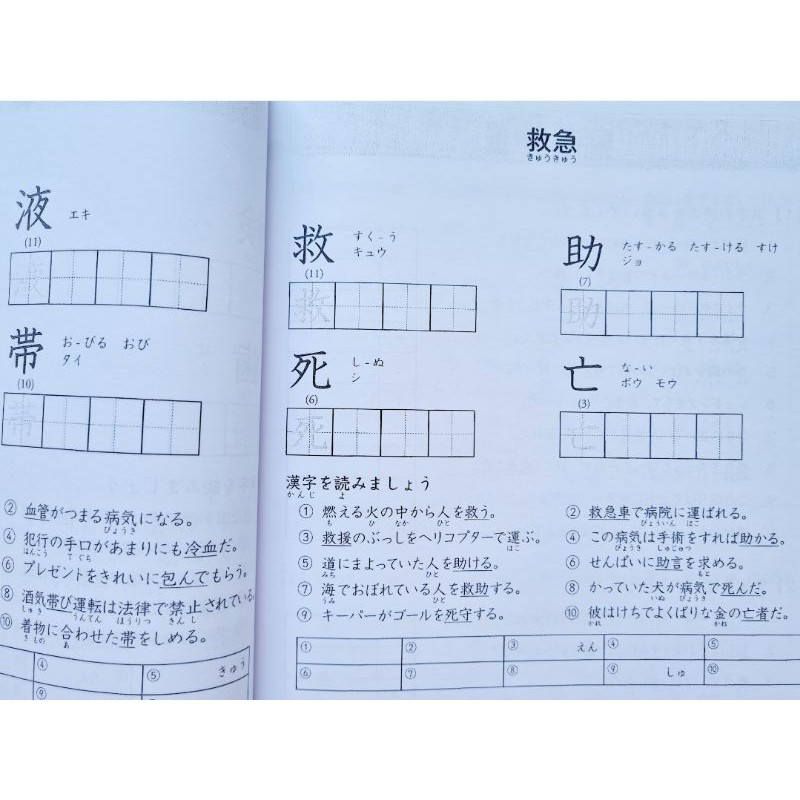 液 エキ
(11)
帯 お-びる おび
タイ
(10)
② 血管がつまる病気になる。
びょうき
④ 犯行の手口があまりにも冷血だ。
はんこう てぐち
⑥ プレゼントをきれいに包んでもらう。
⑧ 酒気帯び運転は法律で禁止されている。
しゅき うんてん ほうりつ きんし
⑩ 着物に合わせた帯をしめる。
きもの あ
④ ⑤ きゅう
⑨
救急
きゅうきゅう
救 すく-う
キュウ
(11)
助 たす-かる たす-ける すけ
ジョ
(7)
死 し-ぬ
シ
(6)
亡 な-い
ボウ モウ
(3)
漢字を読みましょう
かんじ よ
① 燃える火の中から人を救う。
も ひ なか ひと
② 救急車で病院に運ばれる。
びょういん はこ
③ 救援のぶっしをヘリコプターで運ぶ。
はこ
④ この病気は手術をすれば助かる。
びょうき しゅじゅつ
⑤ 道にまよっていた人を助ける。
みち ひと
⑥ せんぱいに助言を求める。
もと
⑦ 海でおぼれている人を救助する。
うみ ひと
⑧ かっていた犬が病気で死んだ。
いぬ びょうき
⑨ キーパーがゴールを死守する。
⑩ 彼はけちでよくばりな金の亡者だ。
かれ かね
① ② ③ えん ④ ⑤
⑥ ⑦ ⑧ ⑨ しゅ ⑩